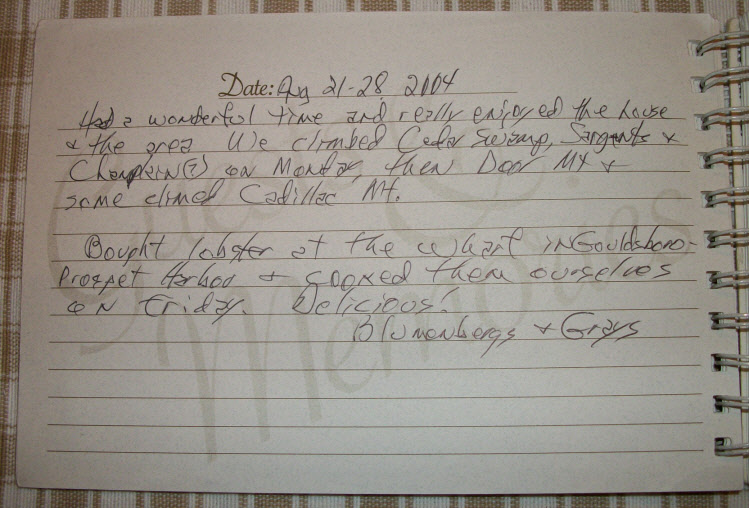 Date: Aug 21-28 2004
Had a wonderful time and really enjoyed the house
& the area We climbed Cedar Swamp, Sargents &
Champlain(?) on Monday, then Door Mt &
some climed Cadillac Mt.
Bought lobster at the wharf in Gouldsboro-
Prospet Harbor & cooked them ourselves
on Friday. Delicious!
Blumenbergs & Grays
Guests & Memories